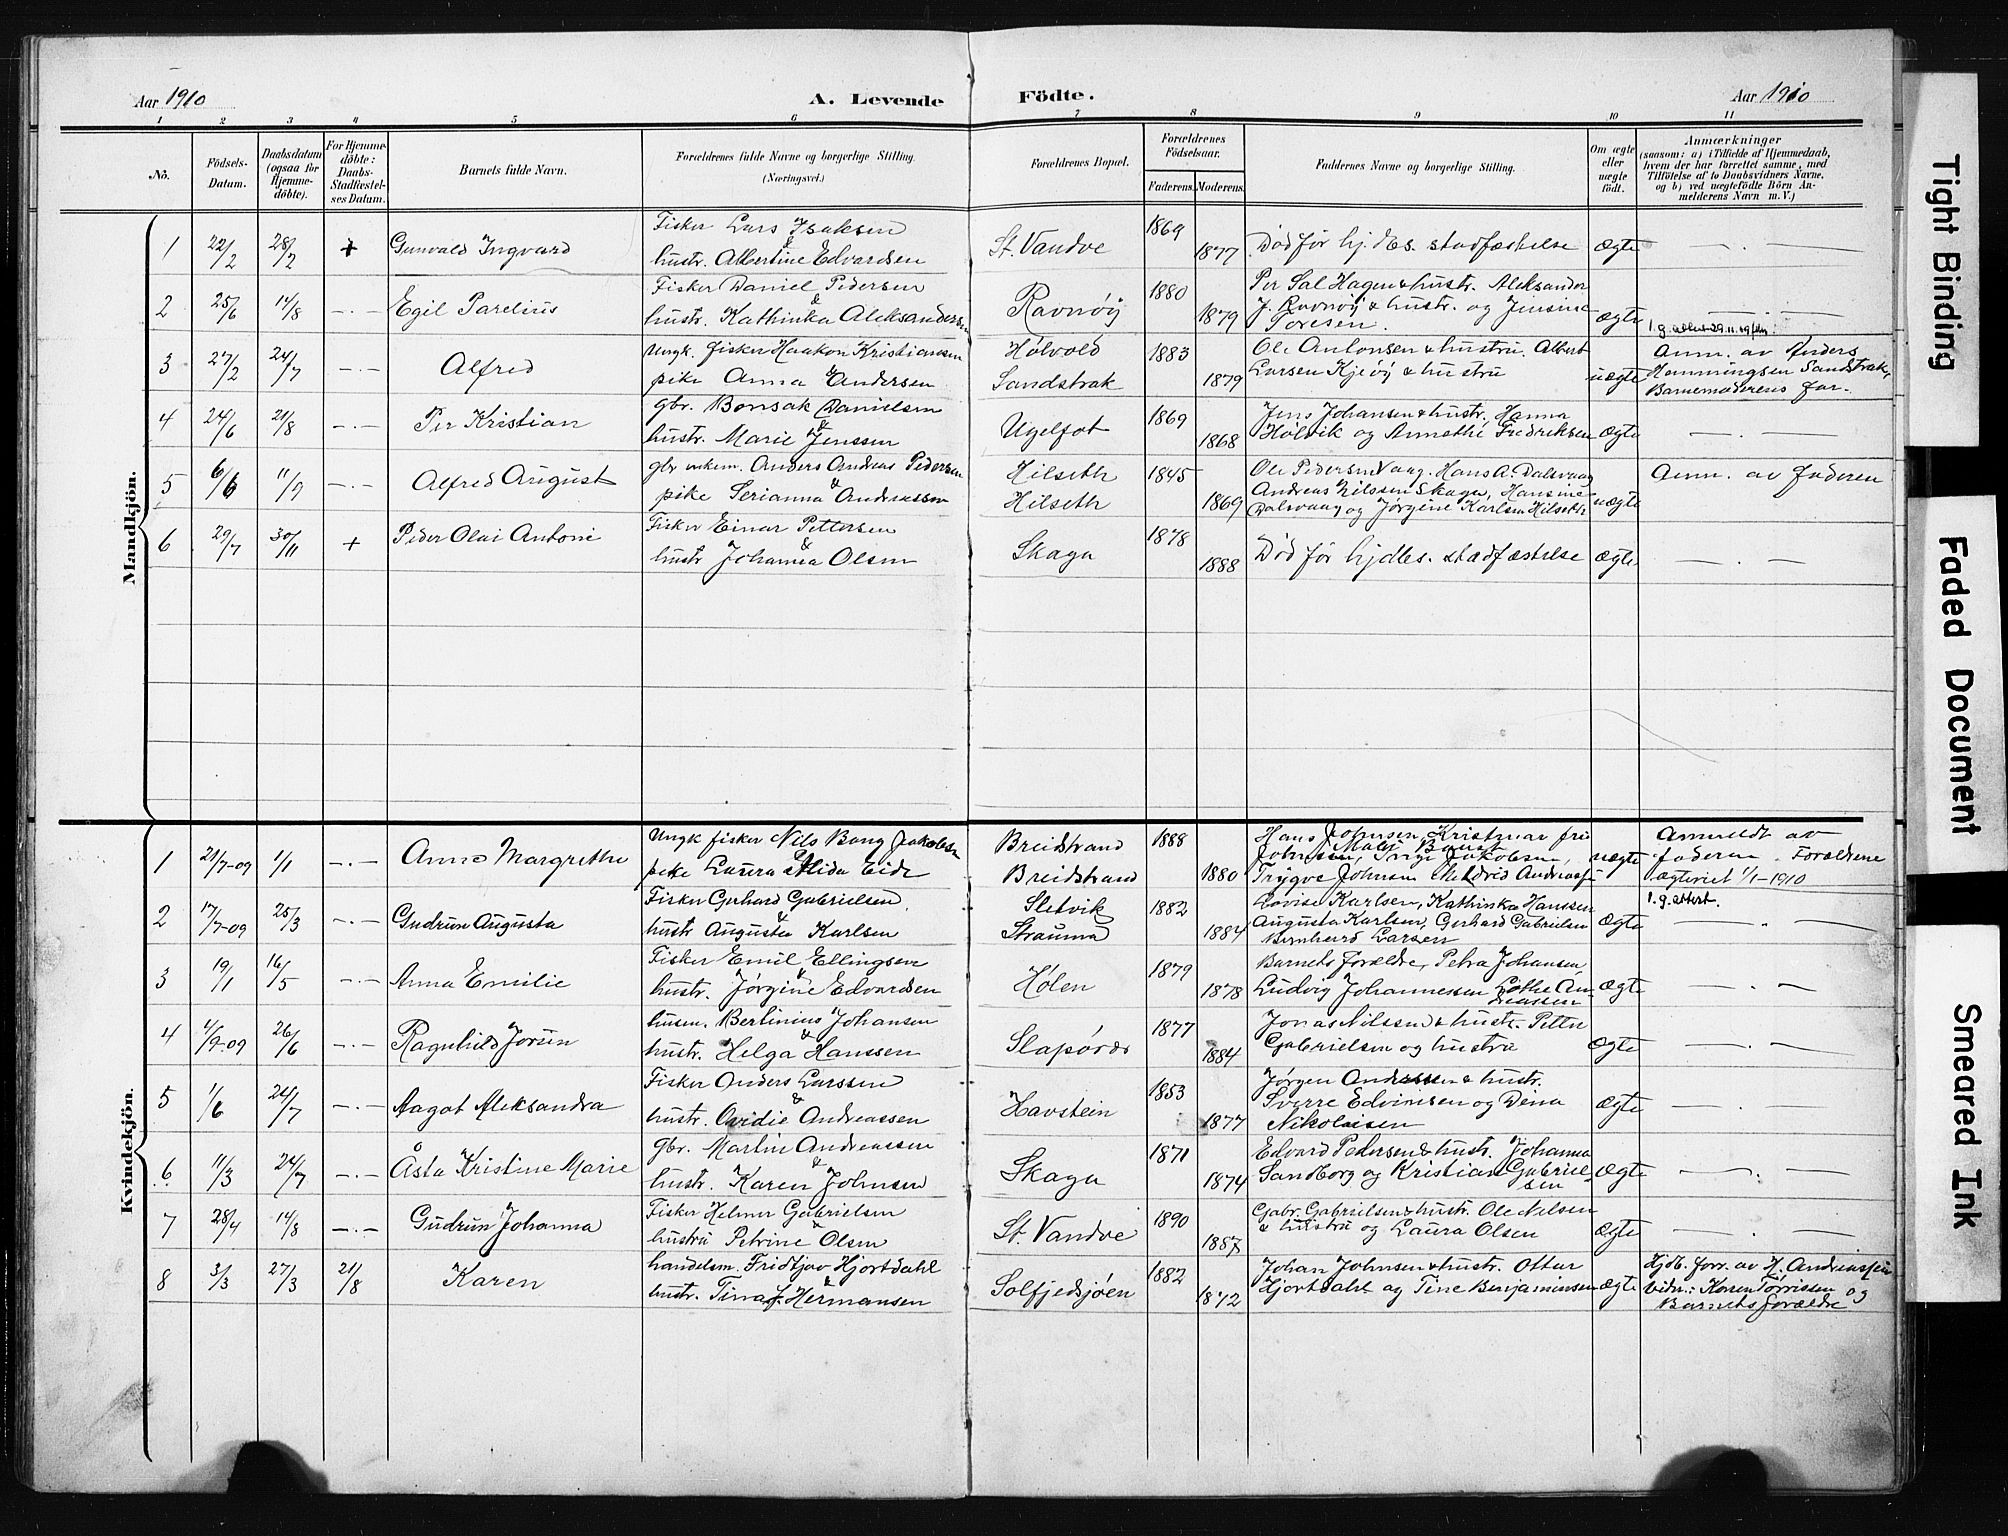 Aar 1910
A. Levende Födte.
Aar 1910
1 2 3 4 5 6 7 8 9 10 11
No.
Födsels-Datum.
Daabsdatum (ogsaa for Hjemme-döbte).
For Hjemme-döbte: Daabs-Stadfæstel-ses Datum.
Barnets fulde Navn.
Forældrenes fulde Navne og borgerlige Stilling. (Næringsvei.)
Forældrenes Bopæl.
Forældrenes Födselsaar.
Faderens. Moderens.
Faddernes Navne og borgerlige Stilling.
Om ægte eller uægte födt.
Anmærkninger
(saasom: a) i Tilfælde af Hjemmedaab,
hvem der har forrettet samme, med
Tilföielse af to Daabsvidners Navne,
og b) ved uægtefödte Börn An-
melderens Navn m. V.)
Mandkjön.
1 22/2 28/2 + Gunvald Ingvard
Fisker Lars Isaksen &
hustr. Albertine Edvardsen
St. Vandve 1869 1877
Død før hjdbs. stadfæstelse ægte — . —
2 25/6 14/8 -.- Egil Parelius
Fisker Daniel Pedersen &
hustr. Kathinka Aleksandersen
Ravnøy 1880 1879
Per Sal Hagen & hustr. Aleksander
J. Ravnøy & hustr. og Jensine
Toresen. ægte — . —
3 27/2 24/7 -.- Alfred
Ungk. fisker Haakon Kristiansen &
pike Anna Andersen
Hølvold
Sandstrak 1883 1879
Ole Antonsen & hustru. Albert
Larsen Kjeøy & hustru uægte
1.g. attest 29.11.49
Anm. av Anders
Hemmingsen Sandstrak,
Barnemoderens far.
4 24/6 21/8 -.- Per Kristian
gbr. Bonsak Danielsen &
hustr. Marie Jenssen
Ugelfot 1869 1868
Jens Johansen & hustr. Hanna
Hølvik og Annethe Fredriksen ægte — . —
5 6/6 11/9 -.- Alfred August
gbr enkem. Anders Andreas Pedersen &
pike Serianna Andreassen
Hilseth
Hilseth 1845 1869
Ole Pedersen Vaag. Hans A. Dalsvaag
Andreas Nilssen Skaga, Hansine
Dalsvaag og Jørgine Karlsen Hilseth uægte
Anm. av faderen
6 29/7 30/11 + Peder Olai Antoni
Fisker Einar Pettersen &
hustr Johanna Olsen
Skaga 1878 1888
Død før hjdbs. stadfæstelse ægte — . —
Kvindekjön.
1 21/7-09 1/1 -.- Anna Margrethe
Ungk fisker Nils Bang Jakobsen &
pike Laura Alida Eide
Breidstrand
Breidstrand 1888 1880
Hans Johnsen, Kristmar fri
Johnssen, Inga Jakobsen,
Trygve Johnsen Meldrid Andreassen uægte
Anmeldt av
faderen. Forældrene
ægteviet 1/1-1910
2 17/7-09 25/3 -.- Gudrun Augusta
Fisker Gerhard Gabrielsen &
hustr Augusta Karlsen
Sletvik
Strauma 1882 1884
Lovise Karlsen, Kathinka Hanssen
Augusta Karlsen, Gerhard Gabrielsen
Bernhard Larsen ægte
1.g. attest.
— . —
3 19/1 16/5 -.- Anna Emilie
Fisker Emil Ellingsen &
hustr. Jørgine Edvardsen
Hølen 1879 1878
Barnets forældre, Petra Johansen,
Ludvig Johannessen Lothe An-
dreassen ægte — . —
4 1/9-09 26/6 -.- Ragnhild Jorun
husm. Bertinius Johansen &
hustr. Helga Hanssen
Slapøren 1877 1884
Jonas Nilssen & hustr. Petter
Gabrielsen og hustru ægte — . —
5 1/6 24/7 -.- Aagot Aleksandra
Fisker Anders Larssen &
hustr. Ovidie Andreassen
Havstein 1853 1877
Jørgen Andreassen & hustr.
Sverre Edvinsen og Dina
Nikolaisen ægte — . —
6 11/3 24/7 -.- Åsta Kristine Marie
gbr. Martin Andreassen &
hustr. Karen Johnsen
Skaga 1871 1874
Edvard Pedersen & hustr. Johanna
Sandborg og Kristian Gabriel-
sen ægte — . —
7 28/4 14/8 -.- Gudrun Johanna
Fisker Helmer Gabrielsen &
hustru Petrine Olsen
St. Vandve 1890 1887
Gabr. Gabrielsen & hustr. Ole Nilsen
& hustru og Laura Olsen ægte — . —
8 3/3 27/3 21/8 Karen
handelsm. Fridtjov Hjortdahl &
hustr. Tina J. Hermansen
Solfjedsjøen 1882 1872
Johan Johnsen & hustr. Ottar
Hjortdahl og Tine Benjaminsen ægte
Hjdb. forr. av H. Andreassen
Vidn.: Karen Torrissen og
Barnets forældre
Tight Binding
Faded Document
Smeared Ink